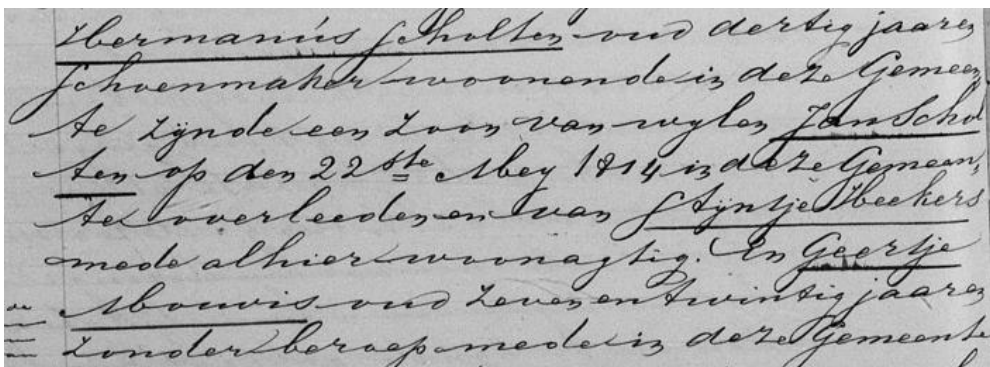 Hermanus Scholten oud dertig jaaren
Schoenmaker woonende in deze Gemeen
te zijnde een Zoon van wylen Jan Schol
ten op den 22ste Mey 1814 in deze Gemeen,
te overleeden en van Stijntje Heekers
mede alhier woonagtig. En Geertje
Mouwis oud zevenentwintig jaaren
zonder beroep mede in deze Gemeente